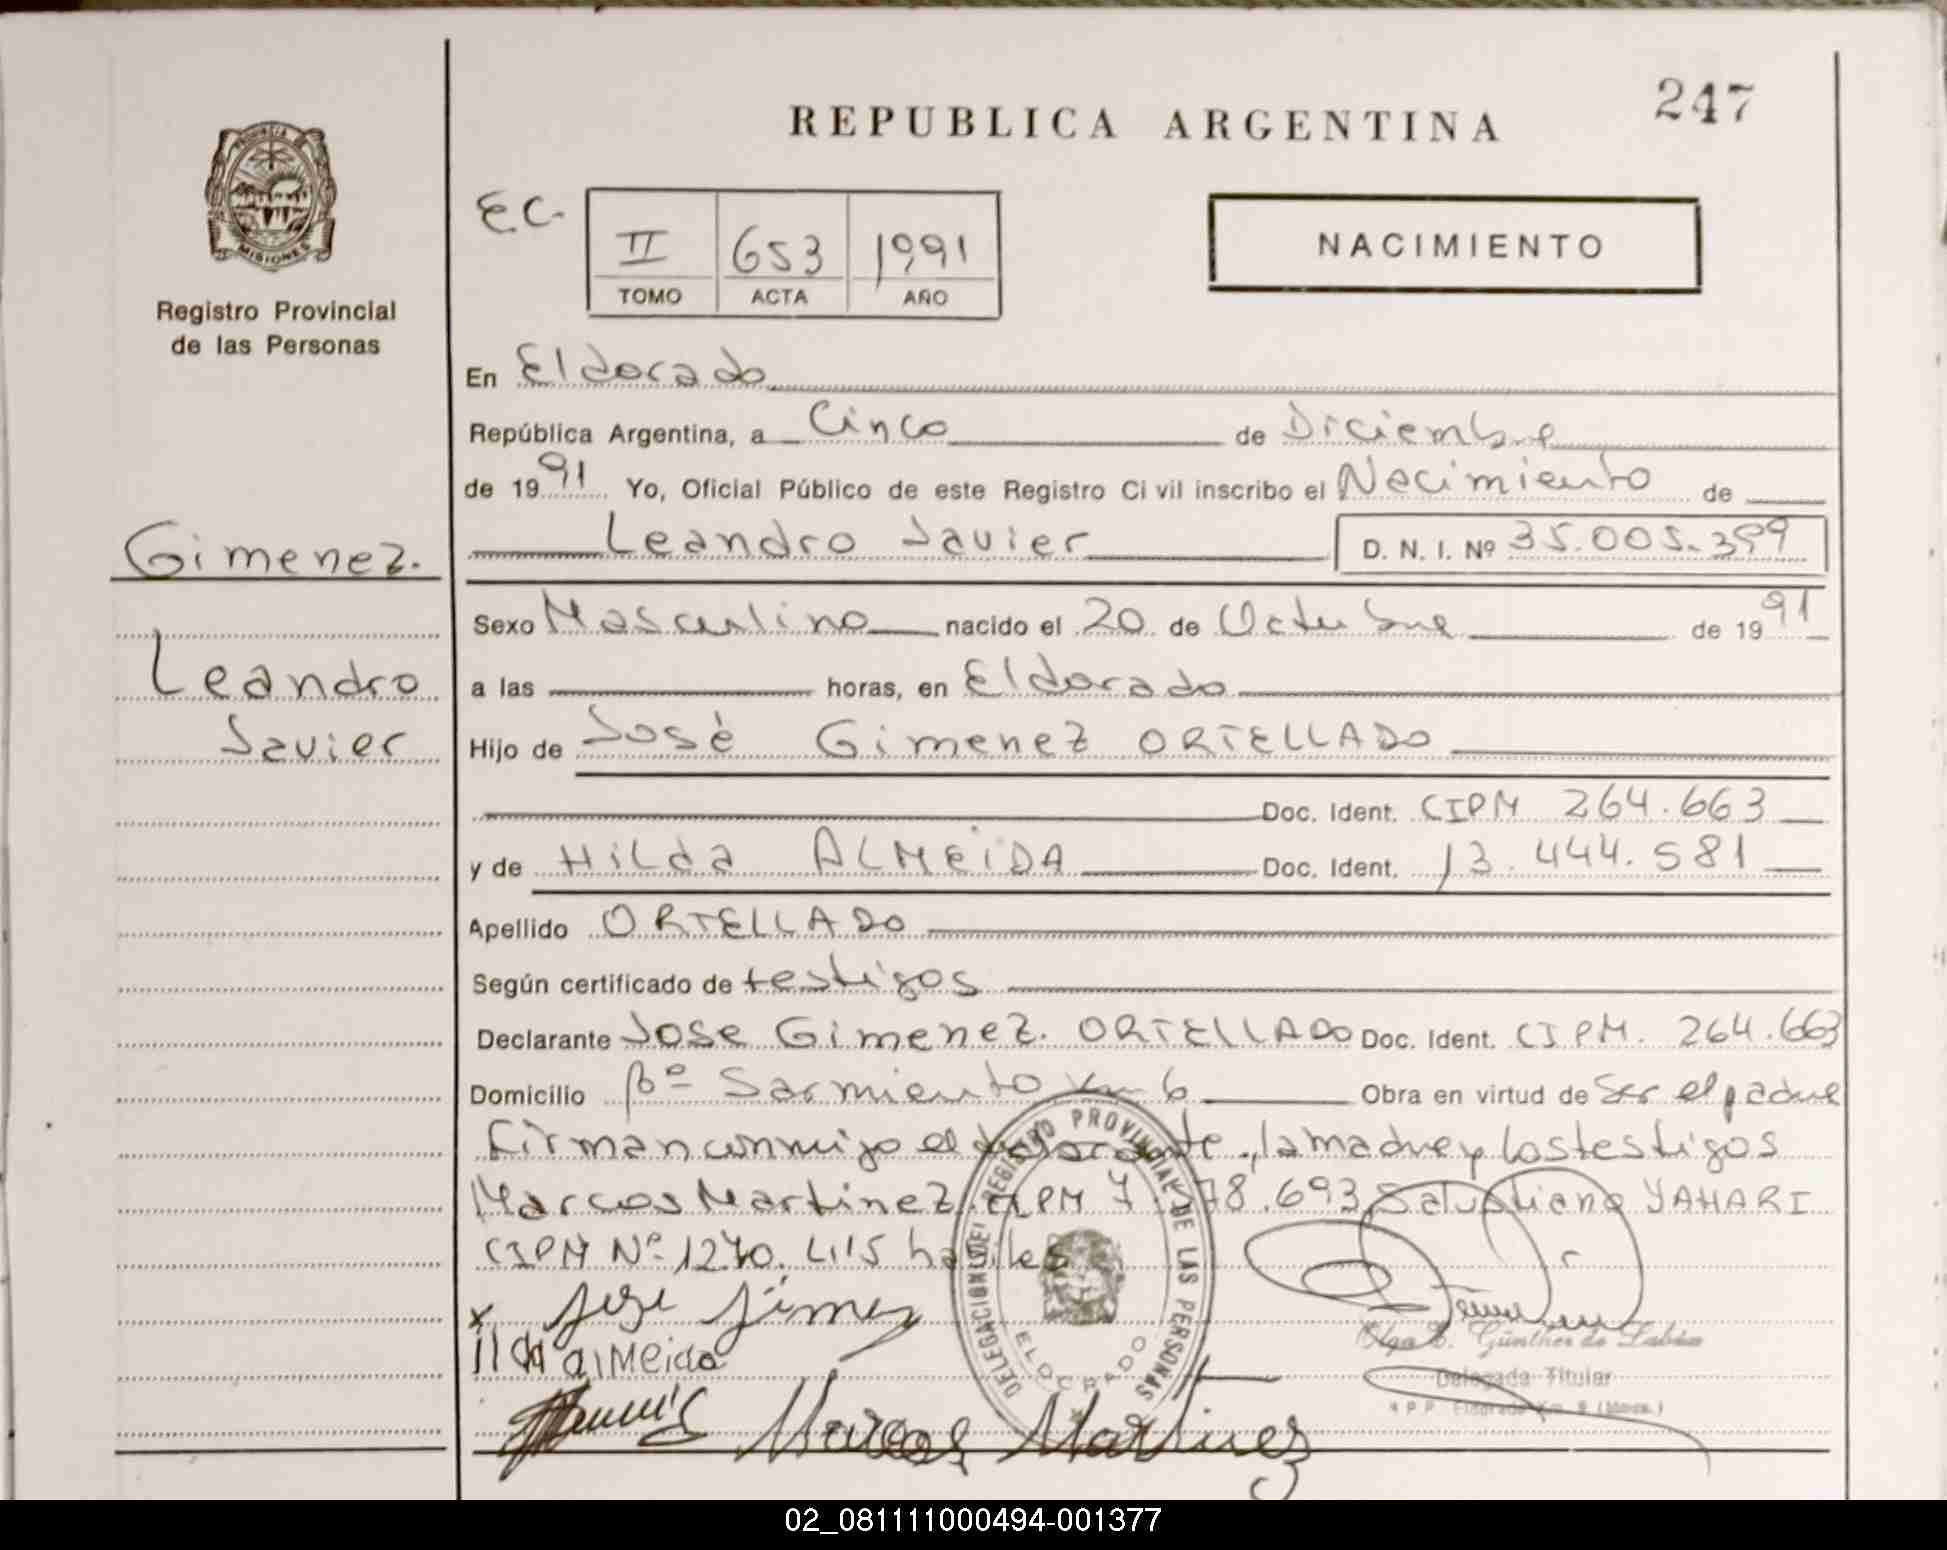 247
REPUBLICA ARGENTINA
PROVINCIA
MISIONES
Registro Provincial
de las Personas
E.C.
II 653 1991
TOMO ACTA AÑO
NACIMIENTO
En Eldorado
República Argentina, a Cinco de Diciembre
de 1991 Yo, Oficial Público de este Registro Civil inscribo el Nacimiento de
Leandro Javier D. N. I. Nº 35.005.399
Gimenez.
Leandro
Javier
Sexo Masculino nacido el 20 de Octubre de 1991
a las horas, en Eldorado
Hijo de José Gimenez ORTELLADO
Doc. Ident. CIPM 264.663
y de HiLda ALMEiDA Doc. Ident. 13.444.581
Apellido ORTELLADO
Según certificado de testigos
Declarante Jose Gimenez. ORTELLADO Doc. Ident. CIPM. 264.663
Domicilio Bº Sarmiento Km 6 Obra en virtud de Ser el padre
Firman conmigo el declarante, la madre y los testigos
Marcos Martinez CIPM 78.693, Salustiano YAHARI
CIPM Nº 1270.415 habiles
DELEGACION DEL REGISTRO PROVINCIAL DE LAS PERSONAS
ELDORADO
x Jose Jimenez
ilda almeida
Marcos Martinez
Olga Günther de
Delegada Titular
Eldorado Km. 9 (Mnes.)
02_081111000494-001377